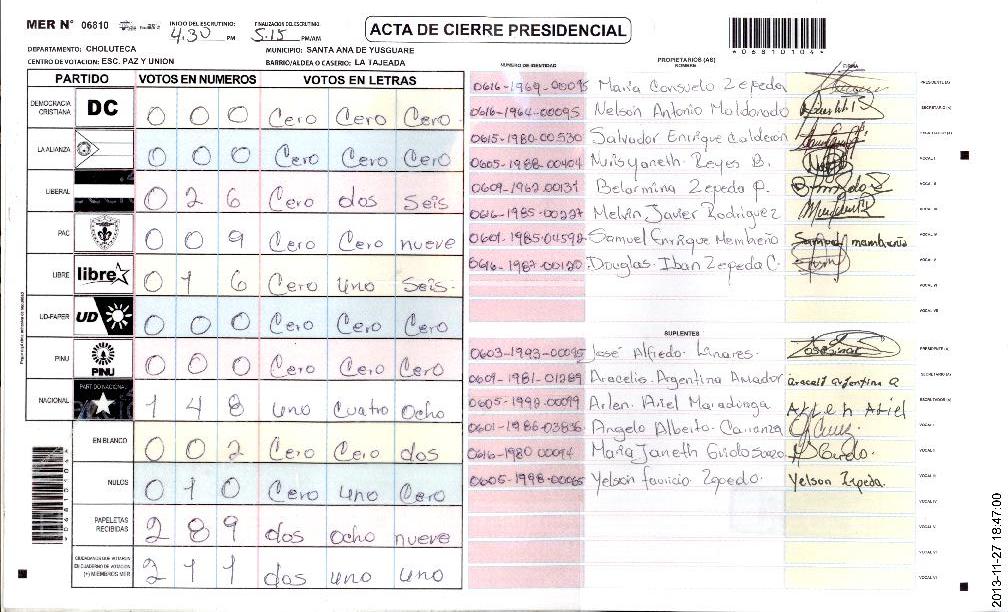 MER N° 06810
INICIO DEL ESCRUTINIO: 4:30 PM
FINALIZACION DEL ESCRUTINIO: 5:15 PM/AM
ACTA DE CIERRE PRESIDENCIAL
*06810104*
DEPARTAMENTO: CHOLUTECA
MUNICIPIO: SANTA ANA DE YUSGUARE
CENTRO DE VOTACION: ESC. PAZ Y UNION
BARRIO/ALDEA O CASERIO: LA TAJEADA
PARTIDO VOTOS EN NUMEROS VOTOS EN LETRAS
DEMOCRACIA CRISTIANA DC 0 0 0 Cero Cero Cero
LA ALIANZA 0 0 0 Cero Cero Cero
LIBERAL 0 2 6 Cero dos Seis
PAC 0 0 9 Cero Cero nueve
LIBRE libre 0 1 6 Cero uno Seis
UD-FAPER UD 0 0 0 Cero Cero Cero
PINU PINU 0 0 0 Cero Cero Cero
NACIONAL PARTIDO NACIONAL 1 4 8 uno cuatro ocho
EN BLANCO 0 0 2 Cero Cero dos
NULOS 0 1 0 Cero uno Cero
PAPELETAS RECIBIDAS 2 8 9 dos ocho nueve
CIUDADANOS QUE VOTARON EN CUADERNO DE VOTACION (+) MIEMBROS MER 2 1 1 dos uno uno
NUMERO DE IDENTIDAD PROPIETARIOS (AS) NOMBRE FIRMA
0616-1969-00095 María Consuelo Zepeda PRESIDENTE (A)
0616-1964-00095 Nelson Antonio Maldonado SECRETARIO (A)
0615-1980-00530 Salvador Enrique Calderon
0605-1988-00404 Reyes B. VOCAL I
0609-1962-00131 Belarmina Zepeda P. VOCAL II
0616-1985-00227 Melvin Javier Rodriguez VOCAL III
0601-1985-04592 Samuel Enrique Membreño Samuel membreño VOCAL IV
0616-1987-00120 Douglas Iban Zepeda C. VOCAL V
VOCAL VI
VOCAL VII
SUPLENTES
0603-1993-00095 José Alfredo Linares PRESIDENTE (A)
0609-1981-01289 Aracelis Argentina Amador SECRETARIO (A)
0605-1998-00099 Arlen Ariel Arlen Ariel ESCRUTADOR (A)
0601-1986-03836 Angelo Alberto Carranza VOCAL I
0616-1980 00094 Maria Janeth VOCAL II
0605-1998-00065 Yelson Yelson Zepeda. VOCAL III
VOCAL IV
VOCAL V
VOCAL VI
VOCAL VII
2013-11-27 18:47:00